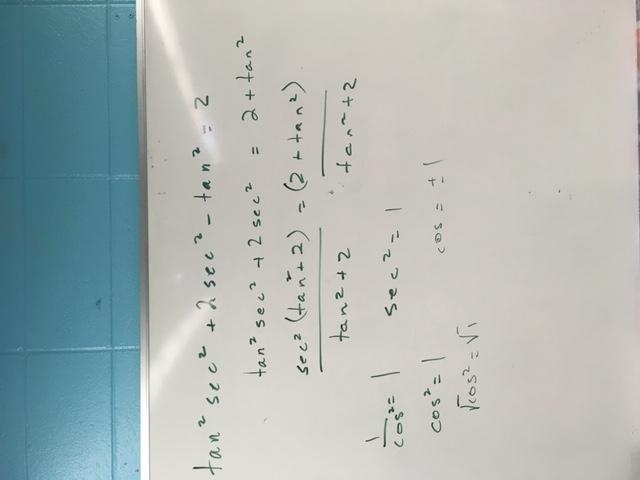 tan² sec² + 2 sec² - tan² = 2
tan² sec² + 2 sec² = 2 + tan²
sec² (tan² + 2) = (2 + tan²)
tan² + 2 tan² + 2
sec² = 1
1/cos² = 1
cos² = 1
√cos² = √1 cos = ±1